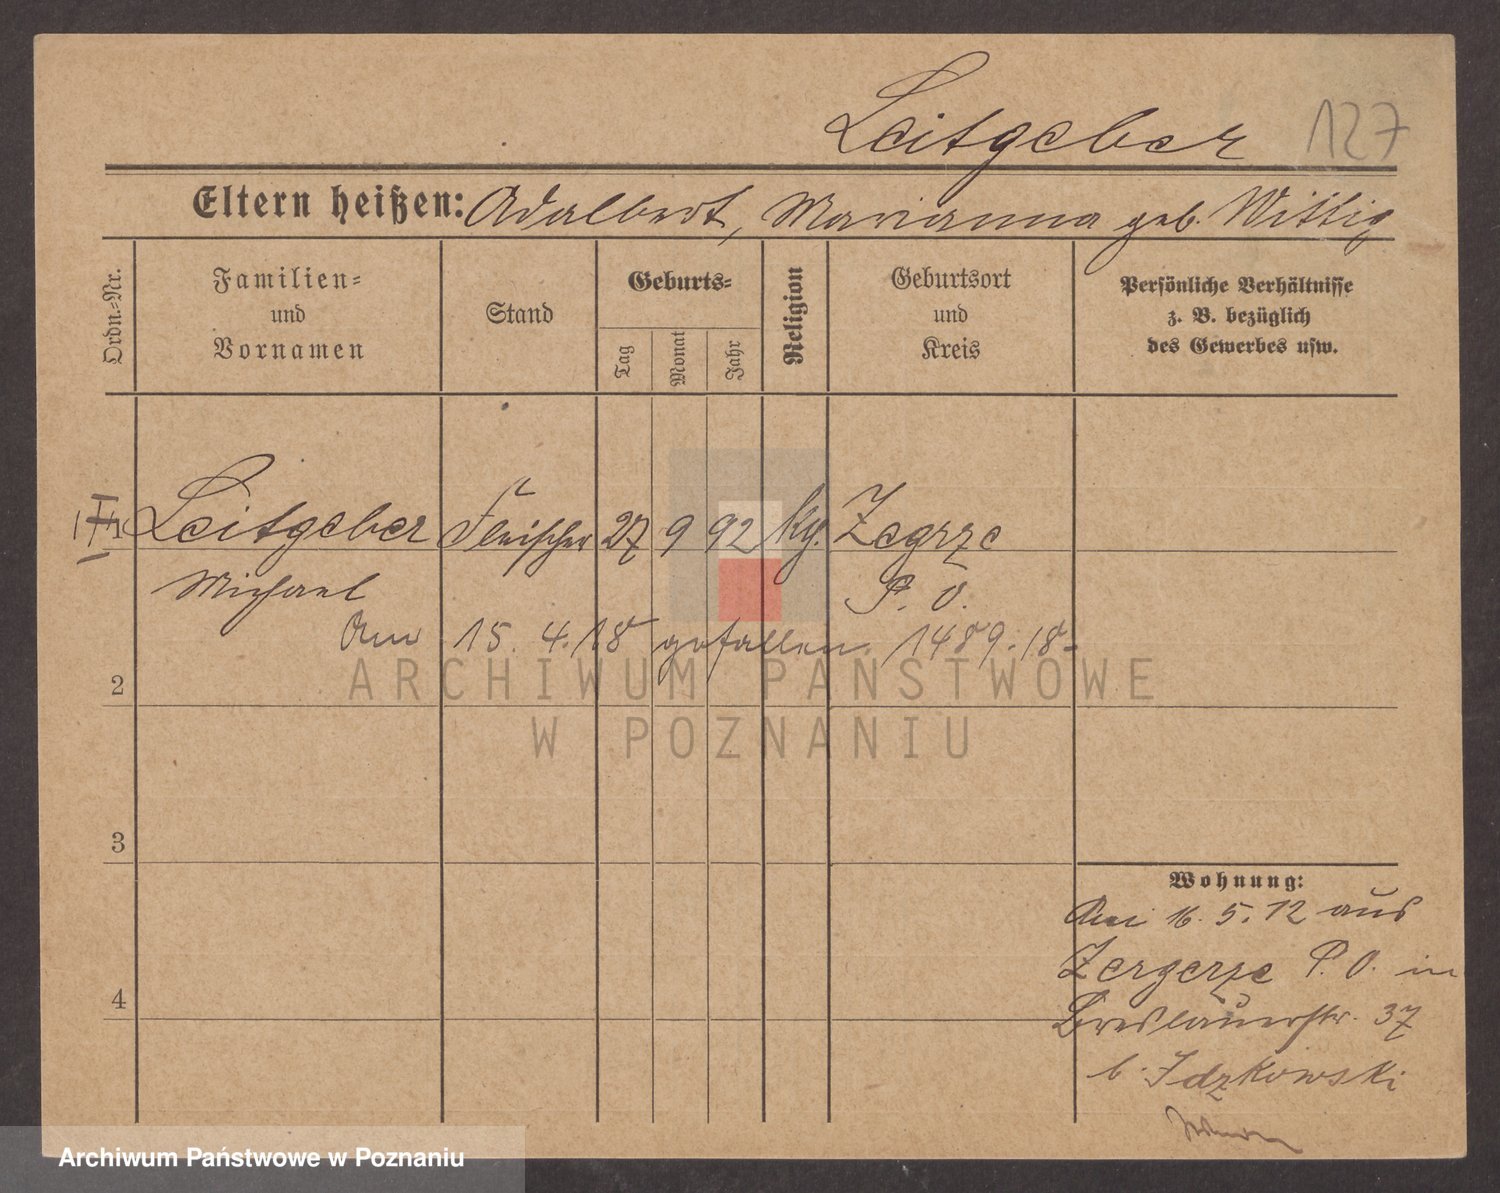 Leitgeber 127
Eltern heißen: Adalbert, Marianna geb. Wittig
Ordn.-Nr.
Familien-
und
Vornamen
Stand
Geburts-
Tag
Monat
Jahr
Religion
Geburtsort
und
Kreis
Persönliche Verhältnisse
z. B. bezüglich
des Gewerbes usw.
1 Leitgeber Fleischer 27 9 92 kg. Zegrze
Michael P. O.
Am 15. 4. 18 gefallen. 1489.18.
2
3
4
Wohnung:
Am 16. 5. 12 aus
Zergerze P. O. in
Breslauerstr. 37
b. Idzkowski
ARCHIWUM PAŃSTWOWE
W POZNANIU
Archiwum Państwowe w Poznaniu